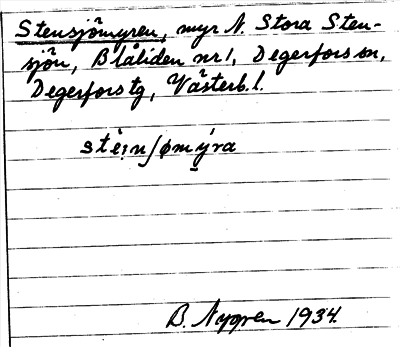 Stensjömyren, myr N. Stora Sten-
sjön, Blåliden nr 1, Degerfors sn,
Degerfors tg, Västerb. l.
stè̩i̩nʃømýra
B. Nygren 1934.